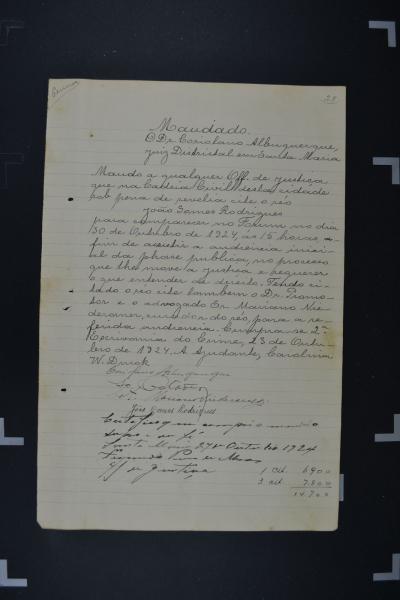 28
Mandado.
O Dr. Coriolano Albuquerque,
juiz Districtal em Santa Maria
Mando a qualquer Off. de justiça
que na Cadeia Civil desta cidade
sob pena de revelia cite o réo
João Gomes Rodrigues
para comparecer no Forum no dia
30 de Outubro de 1924, ás 15 horas, a-
fim de assistir a audiencia inici-
al da phase publica, no processo
que lhe move a justiça e requerer
o que entender de direito. Tendo ci-
tado o réo cite tambem o Dr. Promo-
tor e o advogado Er. Mariano Nie-
derauer, curador do réo, para a re-
ferida audiencia. Cumpra-se. 2ª
Escrivania do Crime, 23 de Outu-
bro de 1924. A Ajudante, Carolina
W. Druck
Coriolano Albuquerque
Mariano Niederauer
João Gomes Rodrigues
Certifico que cumpri o mandado
supra e dou fé
Santa Maria 27 de Outubro 1924
Off de justiça
1 cit. 6900
3 cit. 7800
14.700